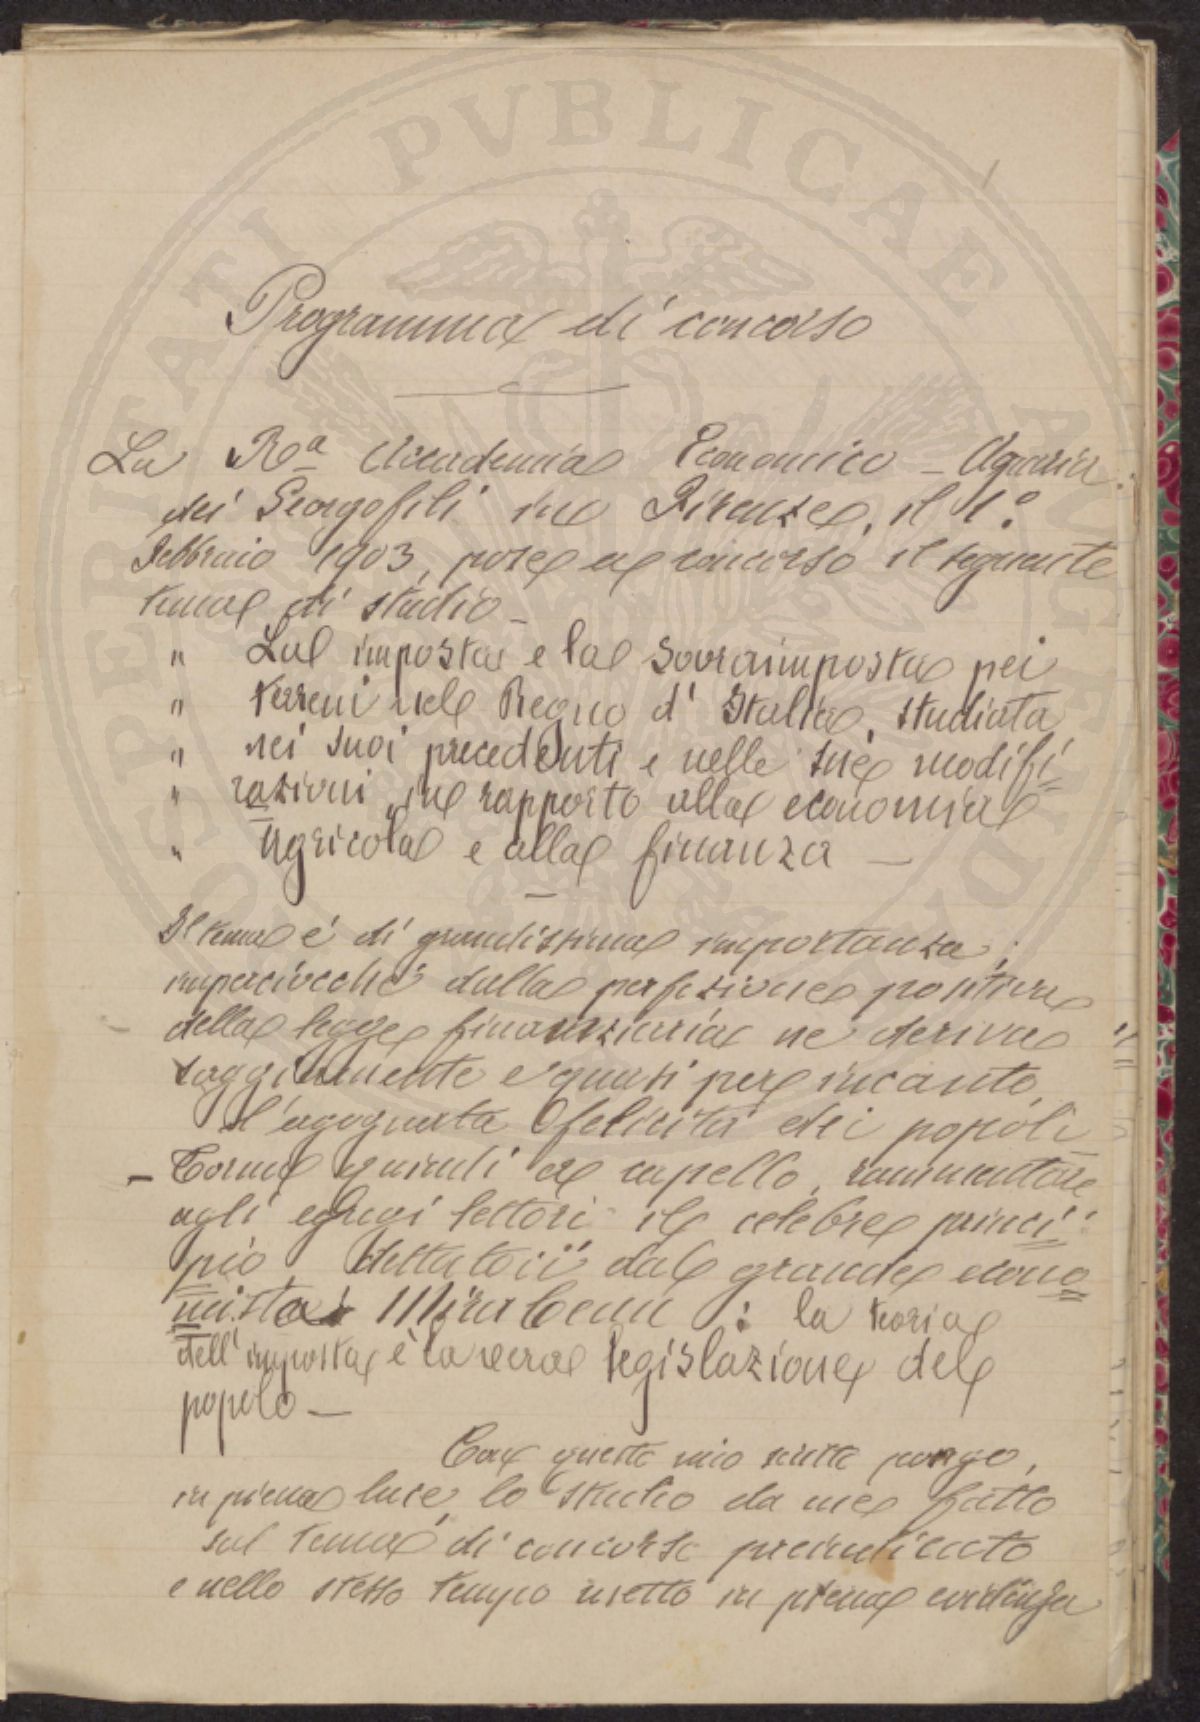 Programma di concorso
La R.a Accademia Economico - Agraria
dei Georgofili in Firenze, il 1.°
Febbraio 1903, pose a concorso il seguente
tema di studio -
" La imposta e la sovraimposta pei
" terreni nel Regno d' Italia, studiata
" nei suoi precedenti e nelle sue modifi=
" cazioni in rapporto alla economia
" agricola e alla finanza -
Il tema è di grandissima importanza;
imperciocchè dalla perfezione positiva
della legge finanziaria ne deriva
saggiamente e quasi per incanto,
l'agognata felicità dei popoli
- Torna quindi a capello, rammentare
agli egregi lettori il celebre princi=
pio dettatoci dal grande econo=
mista Mirabeau : la teoria
dell'imposta è la vera legislazione del
popolo -
Con questo mio scritto pongo,
in piena luce, lo studio da me fatto
sul tema di concorso preindicato
e nello stesso tempo metto in piena evidenza
SPERITATI PVBLICAE AUGENDAE